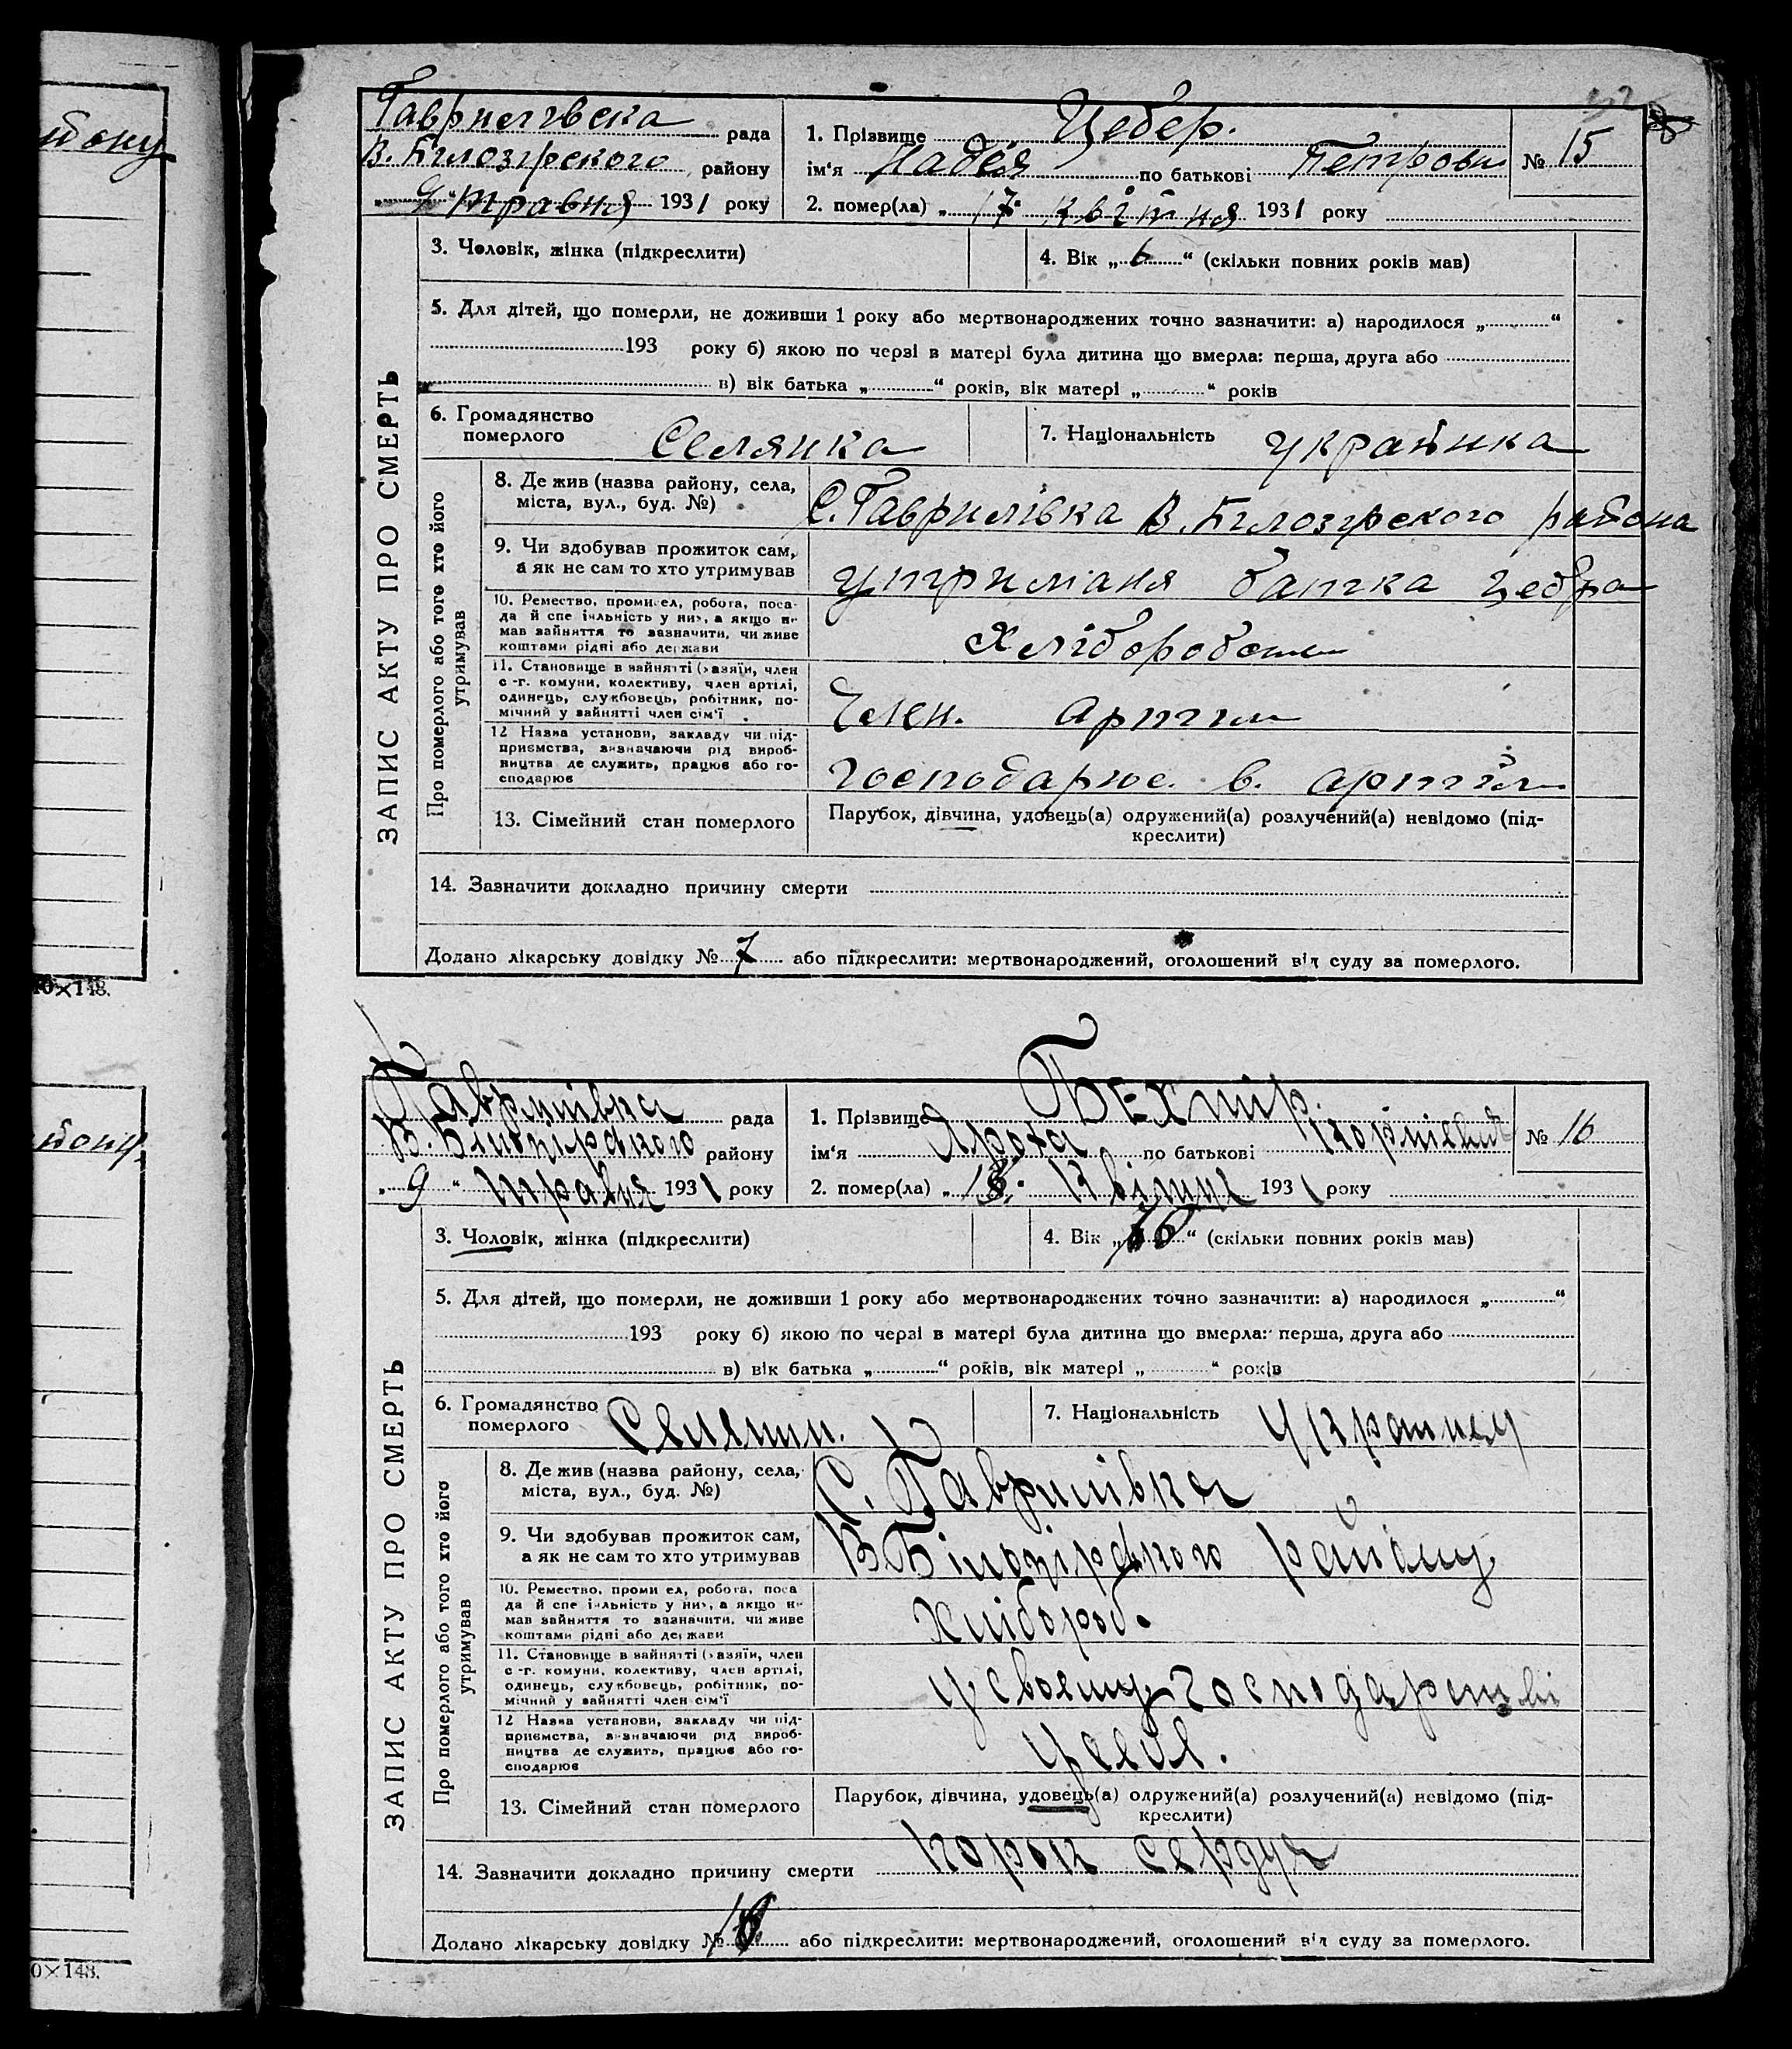 йону
0×148.
йону.
0×148.
8
Гаврилівська рада
В. Білозірского району
„ 9 “ травня 1931 року
1. Прізвище Цебер.
ім‘я Надія по батькові Петровн
2. помер(ла) „ 17 “ квітня 1931 року
№ 15
3. Чоловік, жінка (підкреслити)
4. Вік „ 6 “ (скільки повних років мав)
5. Для дітей, що померли, не доживши 1 року або мертвонароджених точно зазначити: а) народилося „ “
193 року б) якою по черзі в матері була дитина що вмерла: перша, друга або
в) вік батька „ “ років, вік матері „ “ років
ЗАПИС АКТУ ПРО СМЕРТЬ
6. Громадянство
померлого Селянка
7. Національність українка
Про померлого або того хто його
утримував
8. Де жив (назва району, села,
міста, вул., буд. №)
С. Гаврилівка В. Білозірского района
9. Чи здобував прожиток сам,
а як не сам то хто утримував
утриманя батка цебра
10. Ремество, промисел, робота, поса-
да й спеціяльність у них, а якщо не
мав зайняття то зазначити, чи живе
коштами рідні або держави
Хліборобст
11. Становище в зайнятті (хазяїн, член
с.-г. комуни, колективу, член артілі,
одинець, службовець, робітник, по-
мічний у зайнятті член сім‘ї
Член. артіли
12 Назва установи, закладу чи під-
приємства, визначаючи рід вироб-
ництва де служить, працює або го-
сподарює
господарює. в. артіли
13. Сімейний стан померлого
Парубок, дівчина, удовець(а) одружений(а) розлучений(а) невідомо (під-
креслити)
14. Зазначити докладно причину смерти
Додано лікарську довідку № 7 або підкреслити: мертвонароджений, оголошений від суду за померлого.
Гаврилівка рада
В. Білозірского району
„ 9 “ травня 1931 року
1. Прізвище Бехтір.
ім‘я по батькові
2. помер(ла) „ 18 “ Квітня 1931 року
№ 16
3. Чоловік, жінка (підкреслити)
4. Вік „ 70 “ (скільки повних років мав)
5. Для дітей, що померли, не доживши 1 року або мертвонароджених точно зазначити: а) народилося „ “
193 року б) якою по черзі в матері була дитина що вмерла: перша, друга або
в) вік батька „ “ років, вік матері „ “ років
ЗАПИС АКТУ ПРО СМЕРТЬ
6. Громадянство
померлого Селянин.
7. Національність Українец
Про померлого або того хто його
утримував
8. Де жив (назва району, села,
міста, вул., буд. №)
С. Гаврилівка
9. Чи здобував прожиток сам,
а як не сам то хто утримував
В. Білозірского району
10. Ремество, промисел, робота, поса
да й спеціяльність у них, а якщо не
мав зайняття то зазначити, чи живе
коштами рідні або держави
Хлібороб.
11. Становище в зайнятті (хазяїн, член
с.-г. комуни, колективу, член артілі,
одинець, службовець, робітник, по-
мічний у зайнятті член сім‘ї
У своему господарстві
12 Назва установи, закладу чи під-
приємства, визначаючи рід вироб-
ництва де служить, працює або го-
сподарює
У себе.
13. Сімейний стан померлого
Парубок, дівчина, удовець(а) одружений(а) розлучений(а) невідомо (під-
креслити)
14. Зазначити докладно причину смерти порок сердця
Додано лікарську довідку № або підкреслити: мертвонароджений, оголошений від суду за померлого.